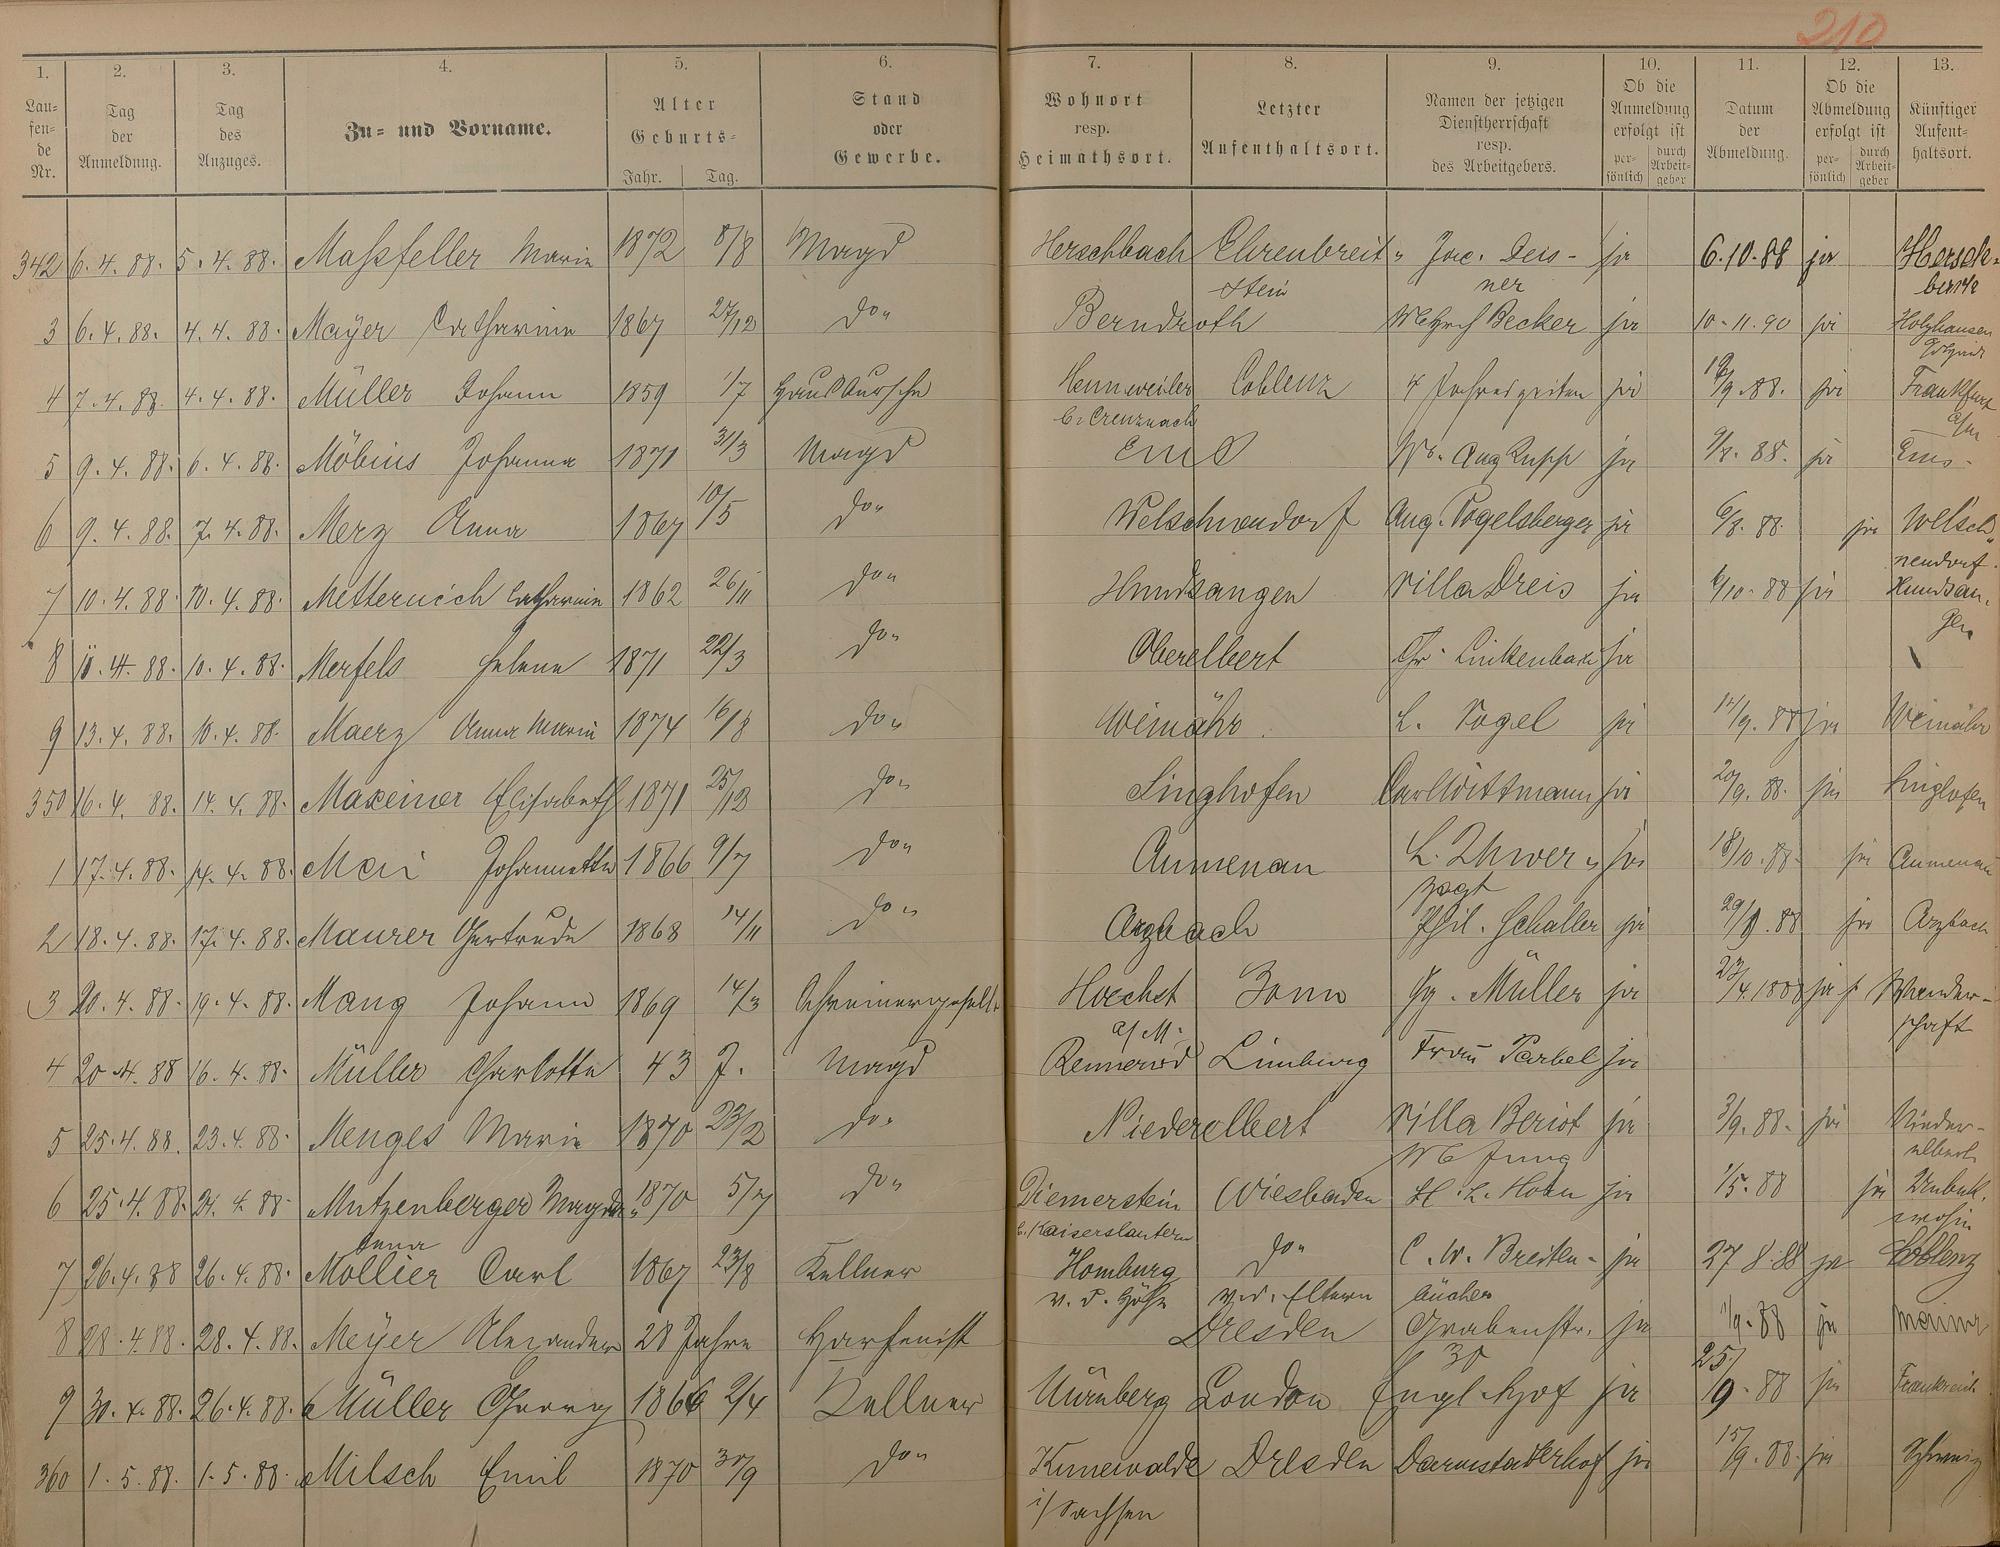 210
1. 2. 3. 4. 5. 6. 7. 8. 9. 10. 11. 12. 13.
Laufende Nr. Tag der Anmeldung. Tag des Anzuges. Zu- und Vorname. Alter Geburts- Jahr. Tag. Stand oder Gewerbe. Wohnort resp. Heimathsort. Letzter Aufenthaltsort. Namen der jetzigen Dienstherrschaft resp. des Arbeitgebers. Ob die Anmeldung erfolgt ist persönlich durch Arbeitgeber Datum der Abmeldung. Ob die Abmeldung erfolgt ist persönlich durch Arbeitgeber Künftiger Aufenthaltsort.
342 6.4.88. 5.4.88. Maßfeller Marie 1872 8/8 Magd Herschbach Ehrenbreit- Jac. Deis- ja 6.10.88 ja Hersch-
stein ner
3 6.4.88. 4.4.88. Mayer Catharine 1867 27/12 do Berndroth Becker ja 10.11.90 ja Holzhausen
4 7.4.88. 4.4.88. Müller Johann 1859 1/7 Hausbursche Hennweiler Coblenz 4 Jahreszeiten ja 19/9.88. ja Frankfurt
b. Creuznach a/m
5 9.4.88. 6.4.88. Möbius Johanna 1871 31/3 Magd Ems Aug Rupp ja 9/8.88. ja Ems.
6 9.4.88. 7.4.88. Merz Anna 1867 10/5 do Welschneudorf Aug. Vogelsberger ja 6/8.88. ja Welsch
neudorf.
7 10.4.88 10.4.88. Metternich Catharine 1862 26/11 do Hundsangen Villa Dreis ja 6/10.88 ja Hundsan-
gen
8 11.4.88. 10.4.88. Merfels Helene 1871 22/3 do Oberelbert Chr. Linkenbach ja
9 13.4.88. 10.4.88. Maerz Anna Marie 1874 16/8 do Weinähr. L. Vogel ja 12/9.88 ja Weinähr
350 16.4.88. 14.4.88. Maxeiner Elisabeth 1871 25/12 do Singhofen Carl Wittmann ja 20/9.88. ja Singhofen
1 17.4.88. 14.4.88. Mai Johannette 1866 9/7 do Aumenau L. ja 18/10.88. ja Aumenau
2 18.4.88. 17.4.88. Maurer Gertrude 1868 14/11 do Arzbach Phil. Schaller ja 29/9.88 ja Arzbach
3 20.4.88. 19.4.88. Mang Johann 1869 14/3 Schreinergeselle Hoechst Bonn Gg. Müller ja 27/4.1888 ja Wander-
a/M. schaft
4 20.4.88 16.4.88. Müller Charlotte 43 J. Magd Rennerod Limburg Frau ja
5 25.4.88. 23.4.88. Menges Marie 1870 23/2 do Niederelbert Villa Beriot ja 3/9.88. ja Nieder-
elbert
6 25.4.88. 21.4.88. Mutzenberger Magda- 1870 5/7 do Diemerstein Wiesbaden H. L. Horn ja 1/5.88 ja Unbek.
lena b. Kaiserslautern wohin
7 26.4.88 26.4.88. Mollier Carl 1867 23/8 Kellner Homburg do C. W. Breiten- ja 27.8.88 ja Coblenz
v. d. Höhe v. d. Eltern bücher
8 28.4.88. 28.4.88. Meyer Alexander 28 Jahre Harfenist Dresden Grabenstr. ja 1/9.88 ja Mainz
30
9 30.4.88. 26.4.88. Müller Georg 1866 2/4 Kellner Nürnberg London Engl. Hof ja 25/9.88 ja Frankreich
360 1.5.88. 1.5.88. Milsch Emil 1870 30/9 do Kunewalde Dresden Darmstädterhof ja 15/9.88. ja
i/Sachsen